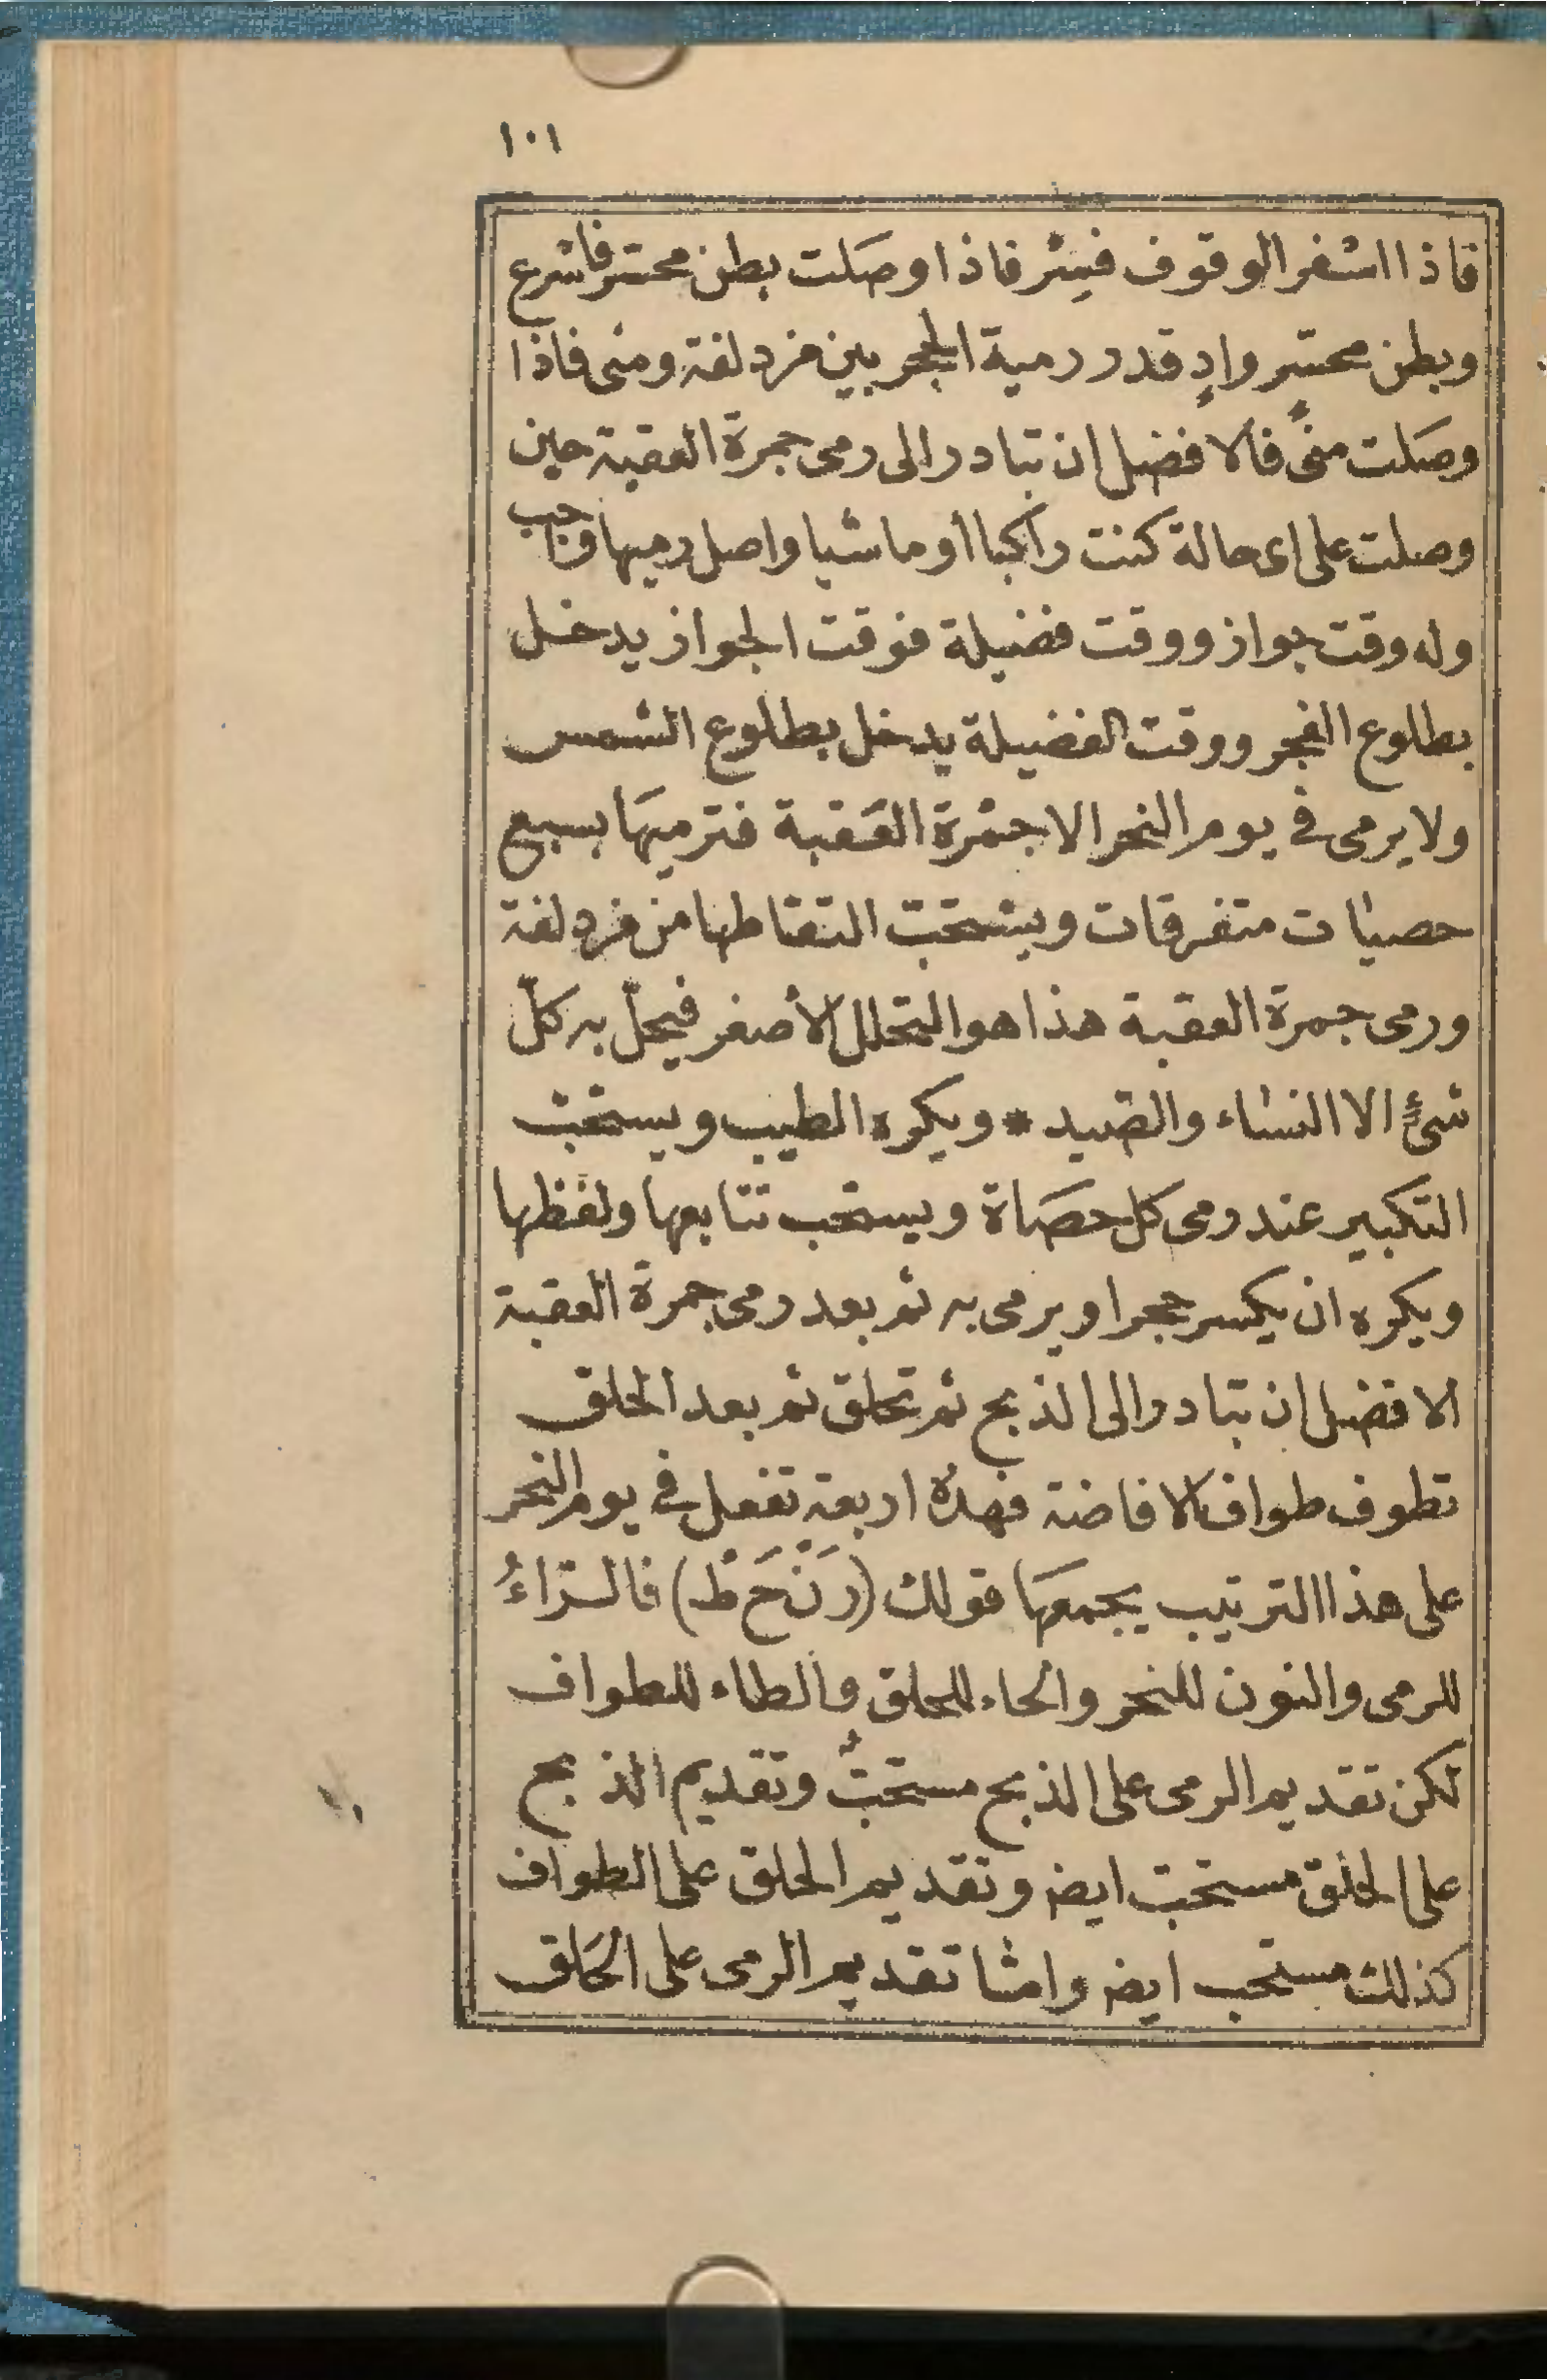 ١٠١
فاذا اسفر الوقوف فسر فاذا وصلت بطن محسر فاسرع
وبطن محسّرٍ وادٍ قدر رمية الحجر بين مزدلفة ومنى فاذا
وصلت منىً فالافضل ان تبادر الى رمى جمرة العقبة حين
وصلت على اى حالة كنت راكبا أو ماشيا واصل رميها واجب
وله وقت جواز ووقت فضيلة فوقت الجواز يدخل
بطلوع الفجر ووقت الفضيلة يدخل بطلوع الشمس
ولا يرمى في يوم النحر الا جمرة العقبة فترميهَا بسبع
حصيات متفرقات ويستحبّ التقاطها من مزدلفة
ورمى جمرة العقبة هذا هو التحلل الأصغر فيحلّ به كلّ
شئٍ الا النساء والصّيد * ويكره الطيب ويستحبّ
التكبير عند رمى كل حصَاة ويستحب تتابعها ولفظها
ويكره ان يكسر حجرا ويرمى به ثم بعد رمى جمرة العقبة
الافضل ان تبادر الى الذبح ثم تحلق ثم بعد الحلق
تطوف طواف الافاضة فهذه اربعة تفعل في يوم النحر
على هذا الترتيب يجمعهَا قولك (رَنْحَ طْ) فالرّاءُ
للرمى والنون للنحر والحاء للحلق والطاء للطواف
لكن تقديم الرمى على الذبح مستحبٌّ وتقديم الذبح
على الحلق مستحبّ ايضا وتقديم الحلق على الطواف
كذلك مستحب ايضا وامّا تقديم الرمى على الحَلق